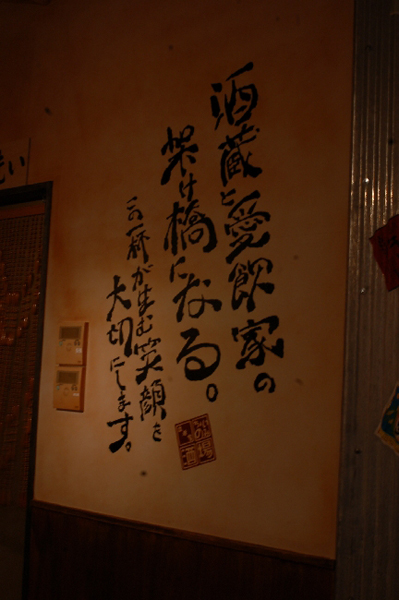 酒蔵と愛飲家の
架け橋になる。
この一杯が生む笑顔を
大切にします。